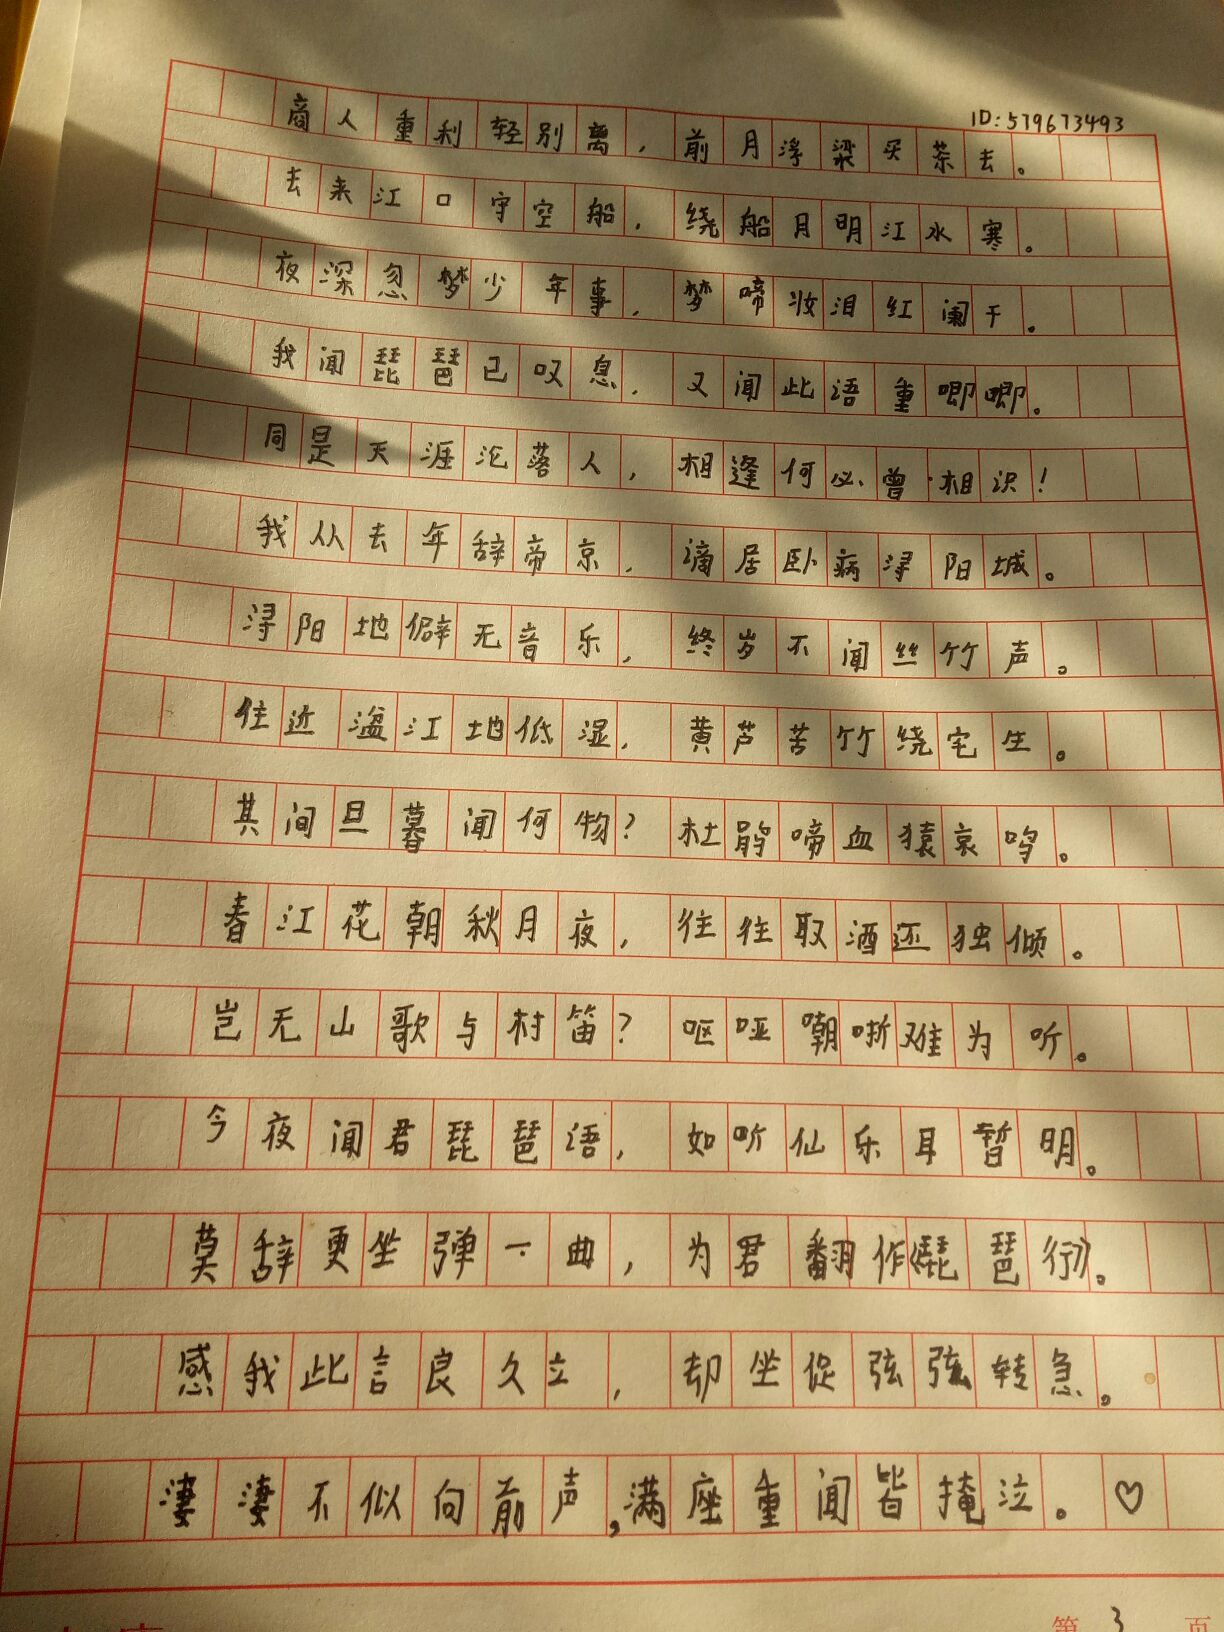 ID:579673493
商人重利轻别离，前月浮梁买茶去。
去来江口守空船，绕船月明江水寒。
夜深忽梦少年事，梦啼妆泪红阑干。
我闻琵琶已叹息，又闻此语重唧唧。
同是天涯沦落人，相逢何必曾相识！
我从去年辞帝京，谪居卧病浔阳城。
浔阳地僻无音乐，终岁不闻丝竹声。
住近湓江地低湿，黄芦苦竹绕宅生。
其间旦暮闻何物？杜鹃啼血猿哀鸣。
春江花朝秋月夜，往往取酒还独倾。
岂无山歌与村笛？呕哑嘲哳难为听。
今夜闻君琵琶语，如听仙乐耳暂明。
莫辞更坐弹一曲，为君翻作琵琶行。
感我此言良久立，却坐促弦弦转急。
凄凄不似向前声，满座重闻皆掩泣。♡
第 3 页